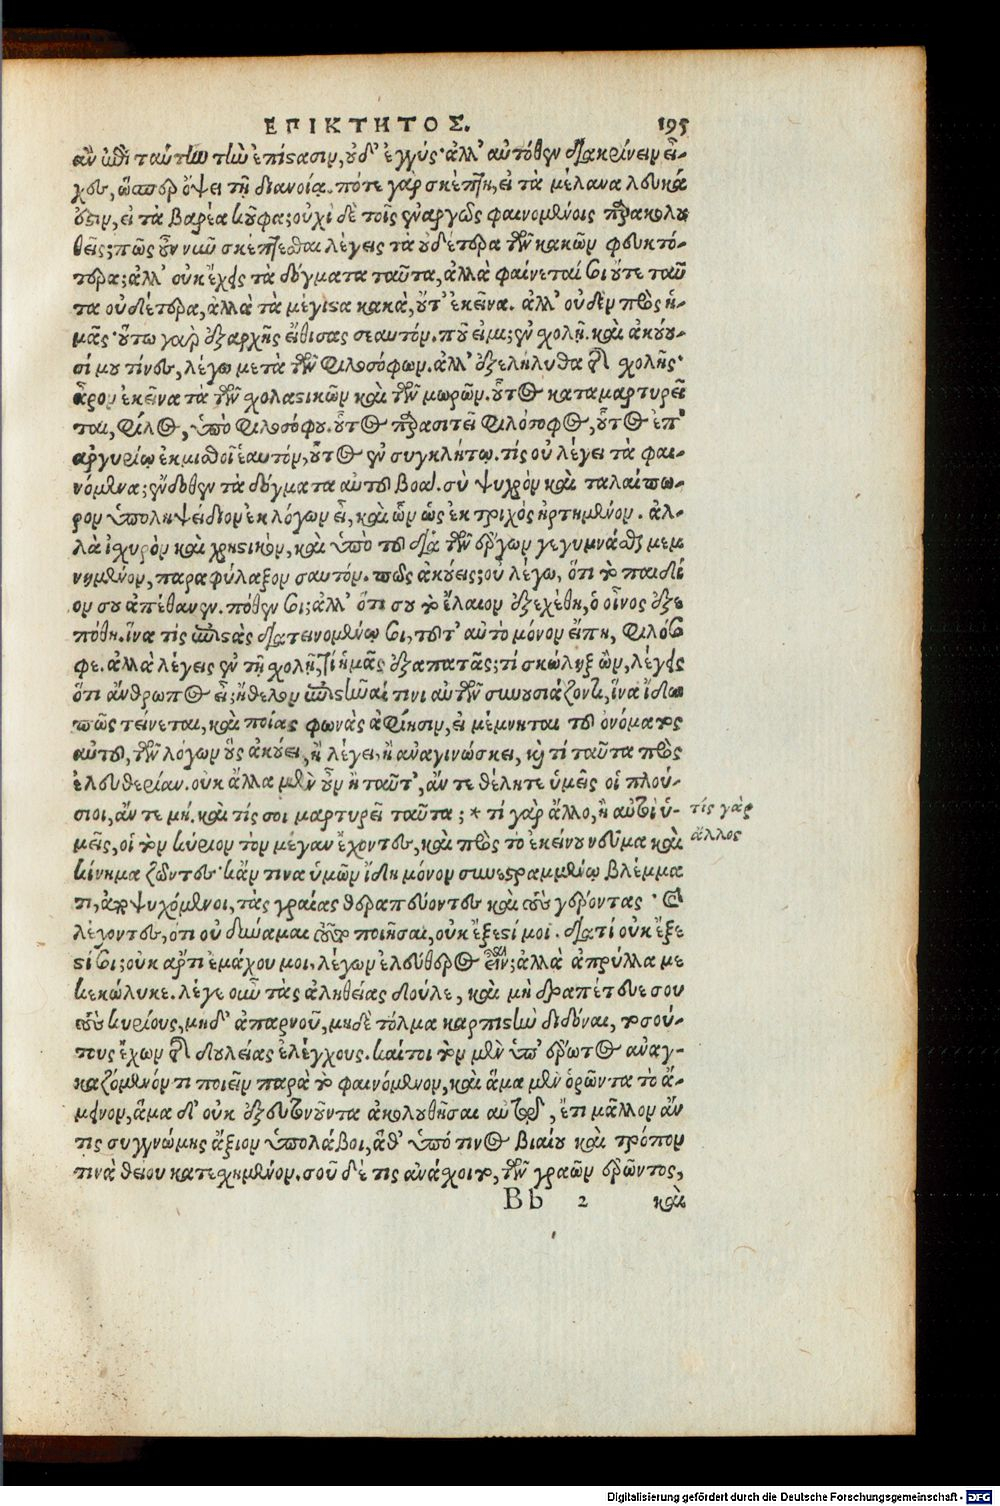 ΕΠΙΚΤΗΤΟΣ. 195
ἂν ἐπὶ ταύτην τὴν ἐπίστασιν, οὐδ' ἐγγύς· ἀλλ' αὐτόθεν διακρίνειν εἶ-
χες, ὥσπερ ὄψει τῇ διανοίᾳ. πότε γὰρ σκέπτῃ, εἰ τὰ μέλανα λευκά
ἐστιν, εἰ τὰ βαρέα κοῦφα; οὐχὶ δὲ τοῖς ἐναργῶς φαινομένοις παρακολου
θεῖς; πῶς οὖν νῦν σκέπτεσθαι λέγεις τὰ οὐδέτερα τῶν κακῶν φευκτό-
τερα; ἀλλ' οὐκ ἔχεις τὰ δόγματα ταῦτα, ἀλλὰ φαίνεταί σοι οὔτε ταῦ
τα οὐδέτερα, ἀλλὰ τὰ μέγιστα κακὰ, οὔτ' ἐκεῖνα. ἀλλ' οὐδὲν πρὸς ἡ-
μᾶς· οὕτω γὰρ ἐξαρχῆς εἴθισας σεαυτόν. ποῦ εἰμι; ἐν σχολῇ. καὶ ἀκούου-
σί μου τίνες, λέγω μετὰ τῶν φιλοσόφων. ἀλλ' ἐξελήλυθα τῆς σχολῆς·
ἆρον ἐκεῖνα τὰ τῶν σχολαστικῶν καὶ τῶν μωρῶν. οὕτος καταμαρτυρεῖ
ται, φίλος, ὑπὸ φιλοσόφου. οὗτος παρασιτεῖ φιλόσοφος, οὗτος ἐπ'
ἀργυρίῳ ἐκμισθοῖ ἑαυτόν, οὗτος ἐν συγκλήτῳ. τίς οὐ λέγει τὰ φαι-
νόμενα; ἔνδοθεν τὰ δόγματα αὐτοῦ βοᾷ. σὺ ψυχρὸν καὶ ταλαίπω-
ρον ὑποληψείδιον ἐκ λόγων εἶ, καὶ ὢν ὡς ἐκ τριχὸς ἠρτημένον. ἀλ-
λὰ ἰσχυρὸν καὶ χρηστικὸν, καὶ ὑπὸ τοῦ διὰ τῶν ἔργων γεγυμνάσθαι μεμ
νημένον, παραφύλαξον σαυτόν. πῶς ἀκούεις; οὐ λέγω, ὅτι τὸ παιδί
ον σου ἀπέθανεν. πόθεν σοι; ἀλλ' ὅτι σου τὸ ἔλαιον ἐξεχέθη, ὁ οἶνος ἐξε
πόθη. ἵνα τὶς ἐπιστὰς διατεινομένῳ σοι, τοῦτ' αὐτὸ μόνον εἴπῃ, φιλόσο
φε. ἀλλὰ λέγεις ἐν τῇ σχολῇ, τί ἡμᾶς ἐξαπατᾷς; τί σκώληξ ὢν, λέγεις
ὅτι ἄνθρωπος εἶ; ἤθελον ἐπιστῆναί τινι αὐτῶν συνουσιάζοντι, ἵνα ἴδω
πῶς τείνεται, καὶ ποίας φωνὰς ἀφίησιν, εἰ μέμνηται τοῦ ὀνόματος
αὐτοῦ, τῶν λόγων οὓς ἀκούει, ἢ λέγει, ἢ ἀναγινώσκει, καὶ τί ταῦτα πρὸς
ἐλευθερίαν. οὐκ ἄλλα μὲν οὖν ἢ ταῦτ', ἄν τε θέλητε ὑμεῖς οἱ πλού-
σιοι, ἄν τε μή. καὶ τίς σοι μαρτυρεῖ ταῦτα; * τί γὰρ ἄλλο, ἢ αὐτοὶ ὑ-
τίς γὰρ
ἄλλος
μεῖς, οἱ τὸν κύριον τὸν μέγαν ἔχοντες, καὶ πρὸς τὸ ἐκείνου νεῦμα καὶ
κίνημα ζῶντες· κἄν τινα ὑμῶν ἴδῃ μόνον συνεστραμμένῳ βλέμμα
τι, ἀποψυχόμενοι, τὰς γραίας θεραπεύοντες καὶ τοὺς γέροντας· καὶ
λέγοντες, ὅτι οὐ δύναμαι τοῦτο ποιῆσαι, οὐκ ἔξεστί μοι. διατί οὐκ ἔξε
στί σοι; οὐκ ἄρτι ἐμάχου μοι, λέγων ἐλεύθερος εἶναι; ἀλλὰ ἀπρύλλα με
κεκώλυκε. λέγε οὖν τὰς ἀληθείας δοῦλε, καὶ μὴ δραπέτευέ σου
τοὺς κυρίους, μηδ' ἀπαρνοῦ, μηδὲ τόλμα καρπιστὴν διδόναι, τοσού-
τους ἔχων τῆς δουλείας ἐλέγχους. καίτοι τὸν μὲν ὑπ' ἔρωτος ἀναγ-
καζόμενόν τι ποιεῖν παρὰ τὸ φαινόμενον, καὶ ἅμα μὲν ὁρῶντα τὸ ἄ-
μεινον, ἅμα δ' οὐκ ἐξευτονοῦντα ἀκολουθῆσαι αὐτῷ, ἔτι μᾶλλον ἄν
τις συγγνώμης ἄξιον ὑπολάβοι, ἅθ' ὑπό τινος βιαίου καὶ τρόπον
τινὰ θείου κατεχημένον. σοῦ δέ τις ἀνάσχοιτο, τῶν γραῶν ἐρῶντος,
Bb 2 καὶ
Digitalisierung gefördert durch die Deutsche Forschungsgemeinschaft - DFG